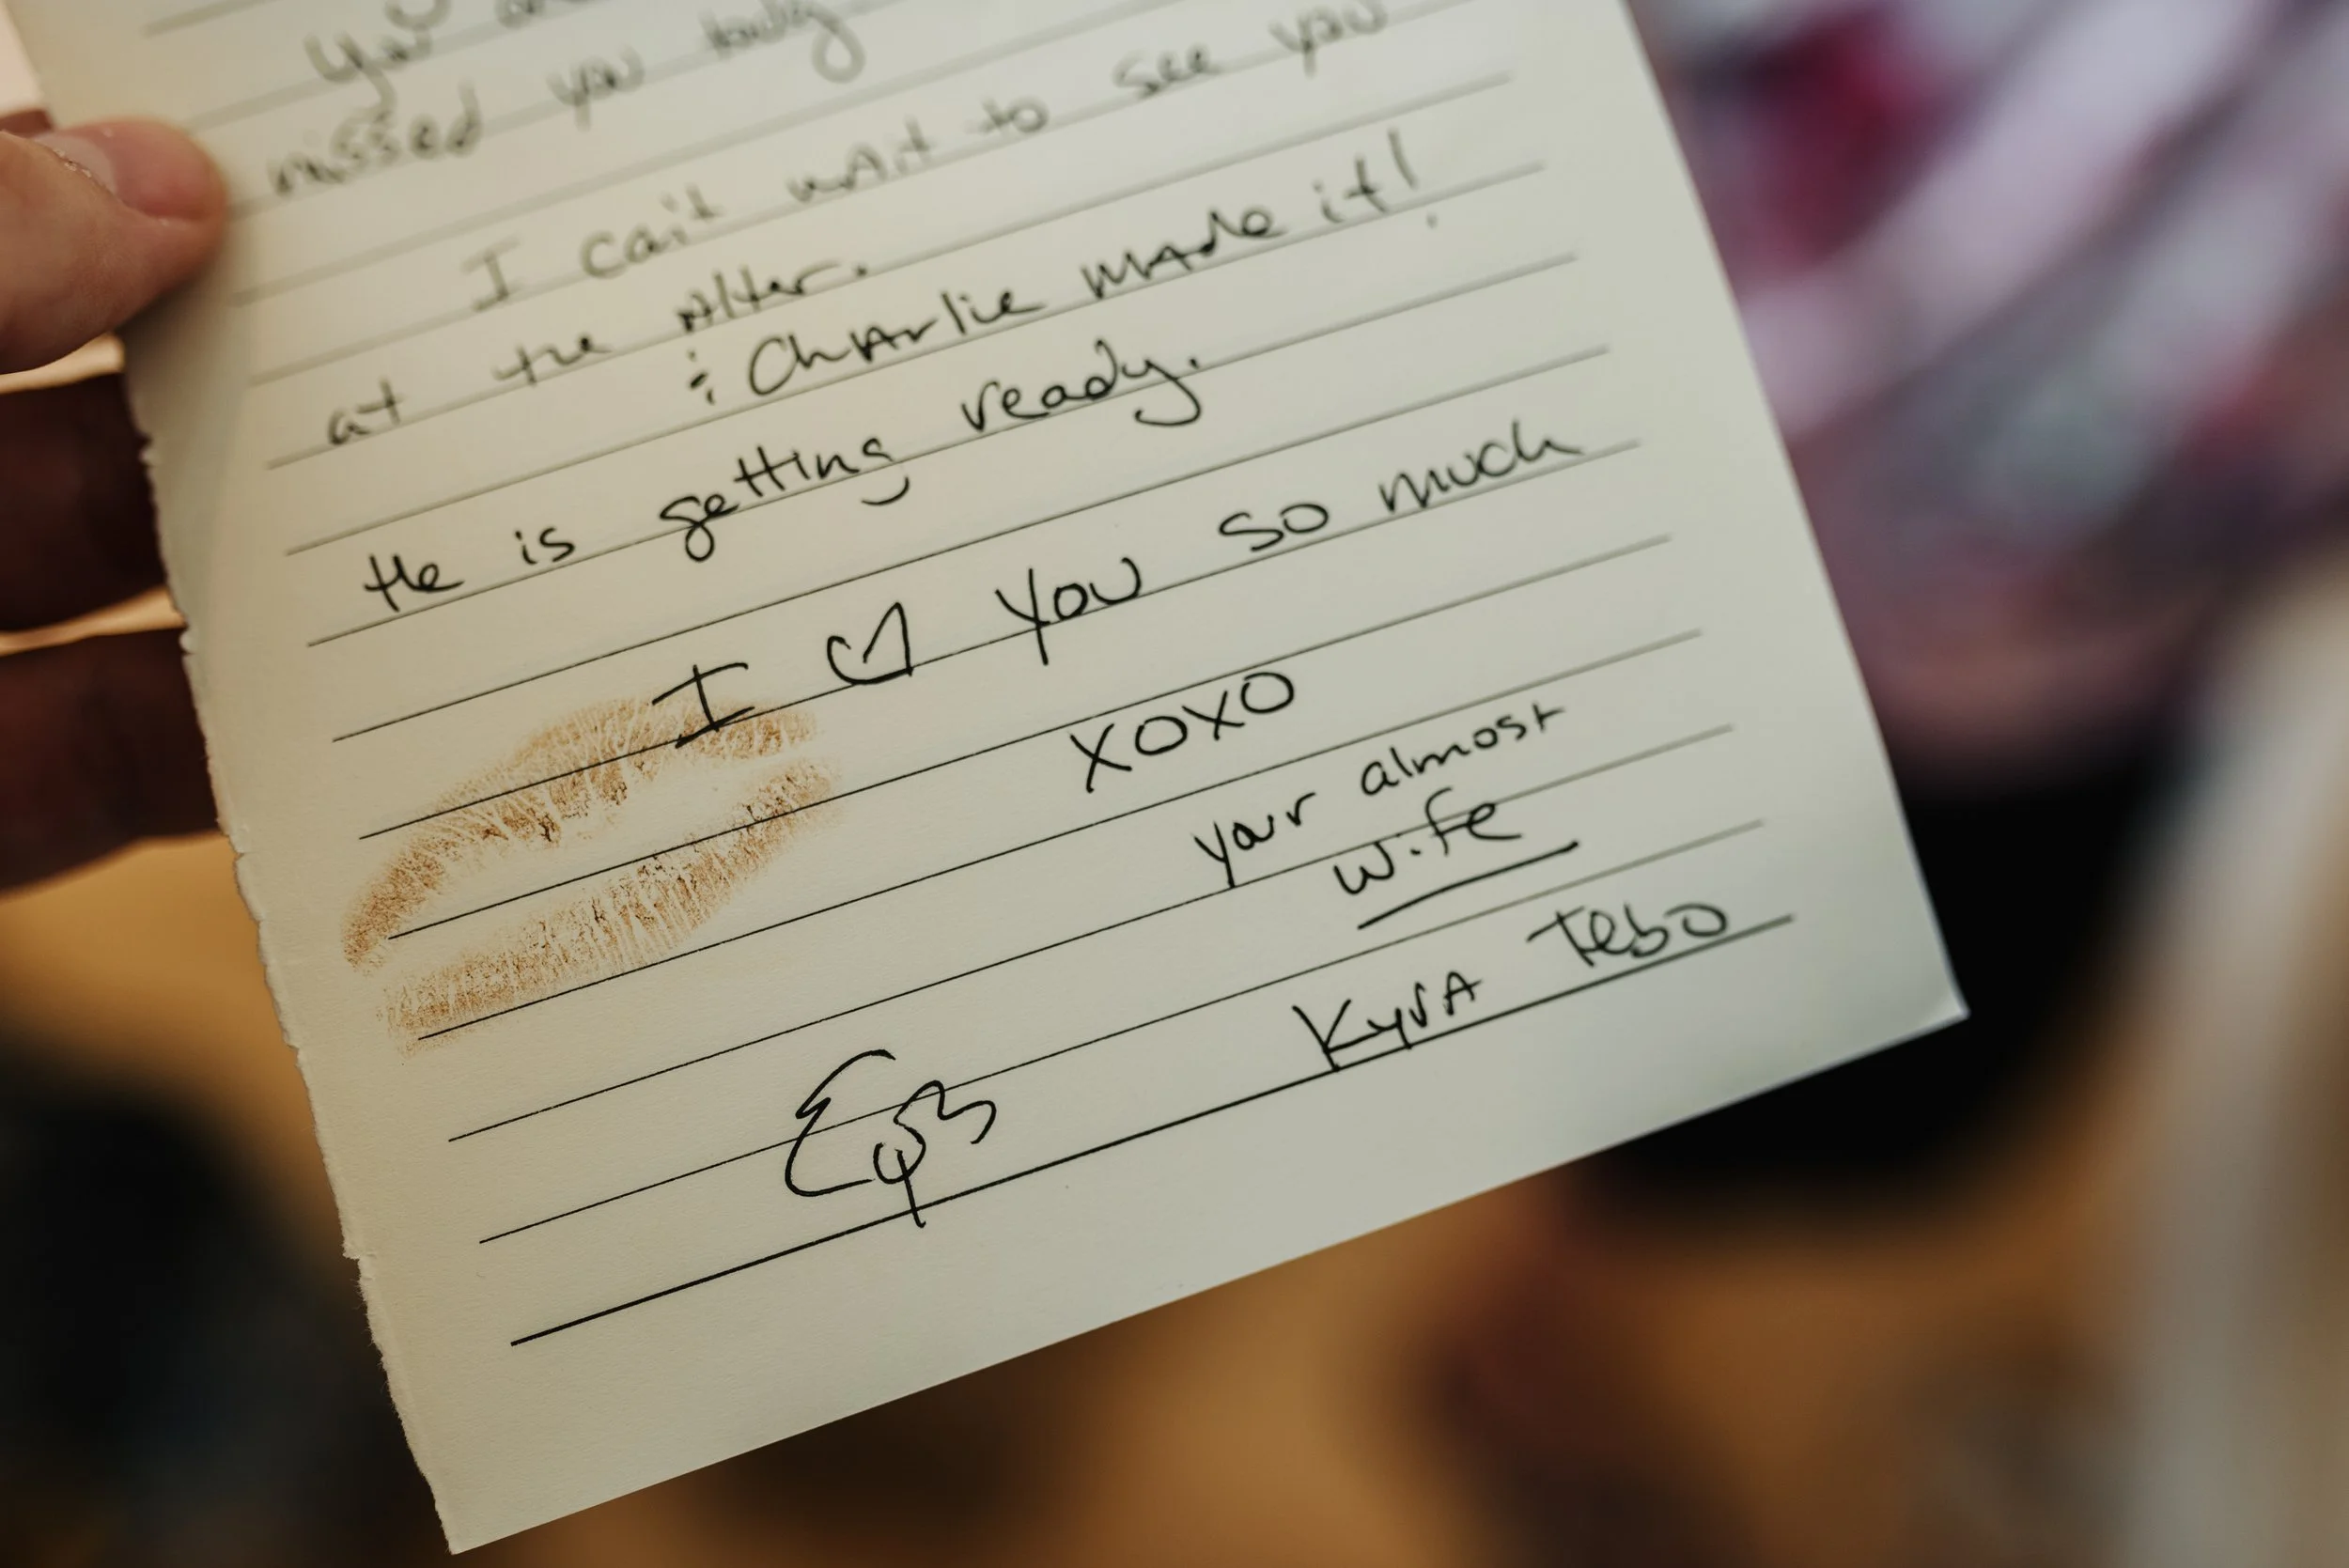 You
missed you today
I can't wait to see you
at the Alter.
: Charlie made it!
He is getting ready.
I ♡ you so much
XOXO
your almost
wife
Kyra Tebo